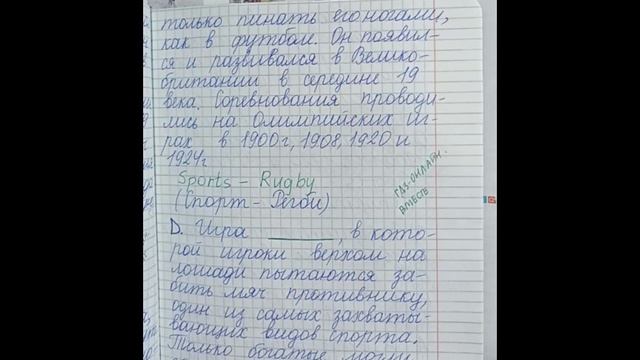 только пинать его ногами,
как в футболе. Он появил-
ся и развивался в Велико-
британии в середине 19
века. Соревнования проводи-
лись на Олимпийских иг-
рах в 1900г, 1908, 1920 и
1924г
Sports - Rugby
(Спорт - Регби)
ГДЗ-ОНЛАЙН.
ВМЕСТЕ
D. Игра ______, в кото-
рой игроки верхом на
лошади пытаются за-
бить мяч противнику,
один из самых захваты-
вающих видов спорта.
Только богатые могли